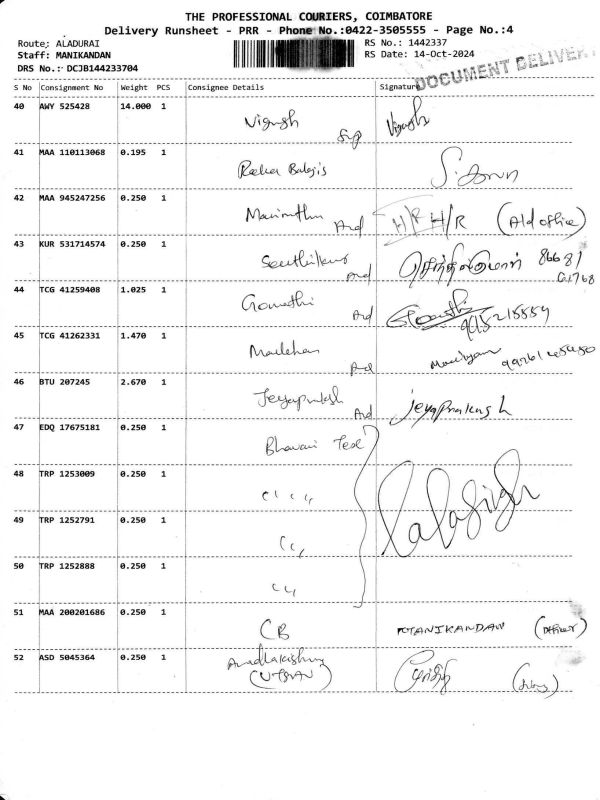 THE PROFESSIONAL COURIERS, COIMBATORE
Delivery Runsheet - PRR - Phone No.:0422-3505555 - Page No.:4
Route: ALADURAI
RS No.: 1442337
Staff: MANIKANDAN
RS Date: 14-Oct-2024
DRS No.: DCJB144233704
DOCUMENT DELIVER
S No Consignment No Weight PCS Consignee Details Signature
40 AWY 525428 14.000 1 Vignesh Vignesh
41 MAA 110113068 0.195 1 Balajis S. Arun
42 MAA 945247256 0.250 1 Marimuthu And H/R H/R (Ald office)
43 KUR 531714574 0.250 1 Senthilkumar And செந்தில்குமார் 86681
61768
44 TCG 41259408 1.025 1 Gomathi And Gomathi
9952 15559
45 TCG 41262331 1.470 1 And
46 BTU 207245 2.670 1 Jeyaprakash And jeyaprakash
47 EDQ 17675181 0.250 1 Bhavani Tex
48 TRP 1253009 0.250 1
49 TRP 1252791 0.250 1
50 TRP 1252888 0.250 1
51 MAA 200201686 0.250 1 CB MANIKANDAN (officer)
52 ASD 5045364 0.250 1